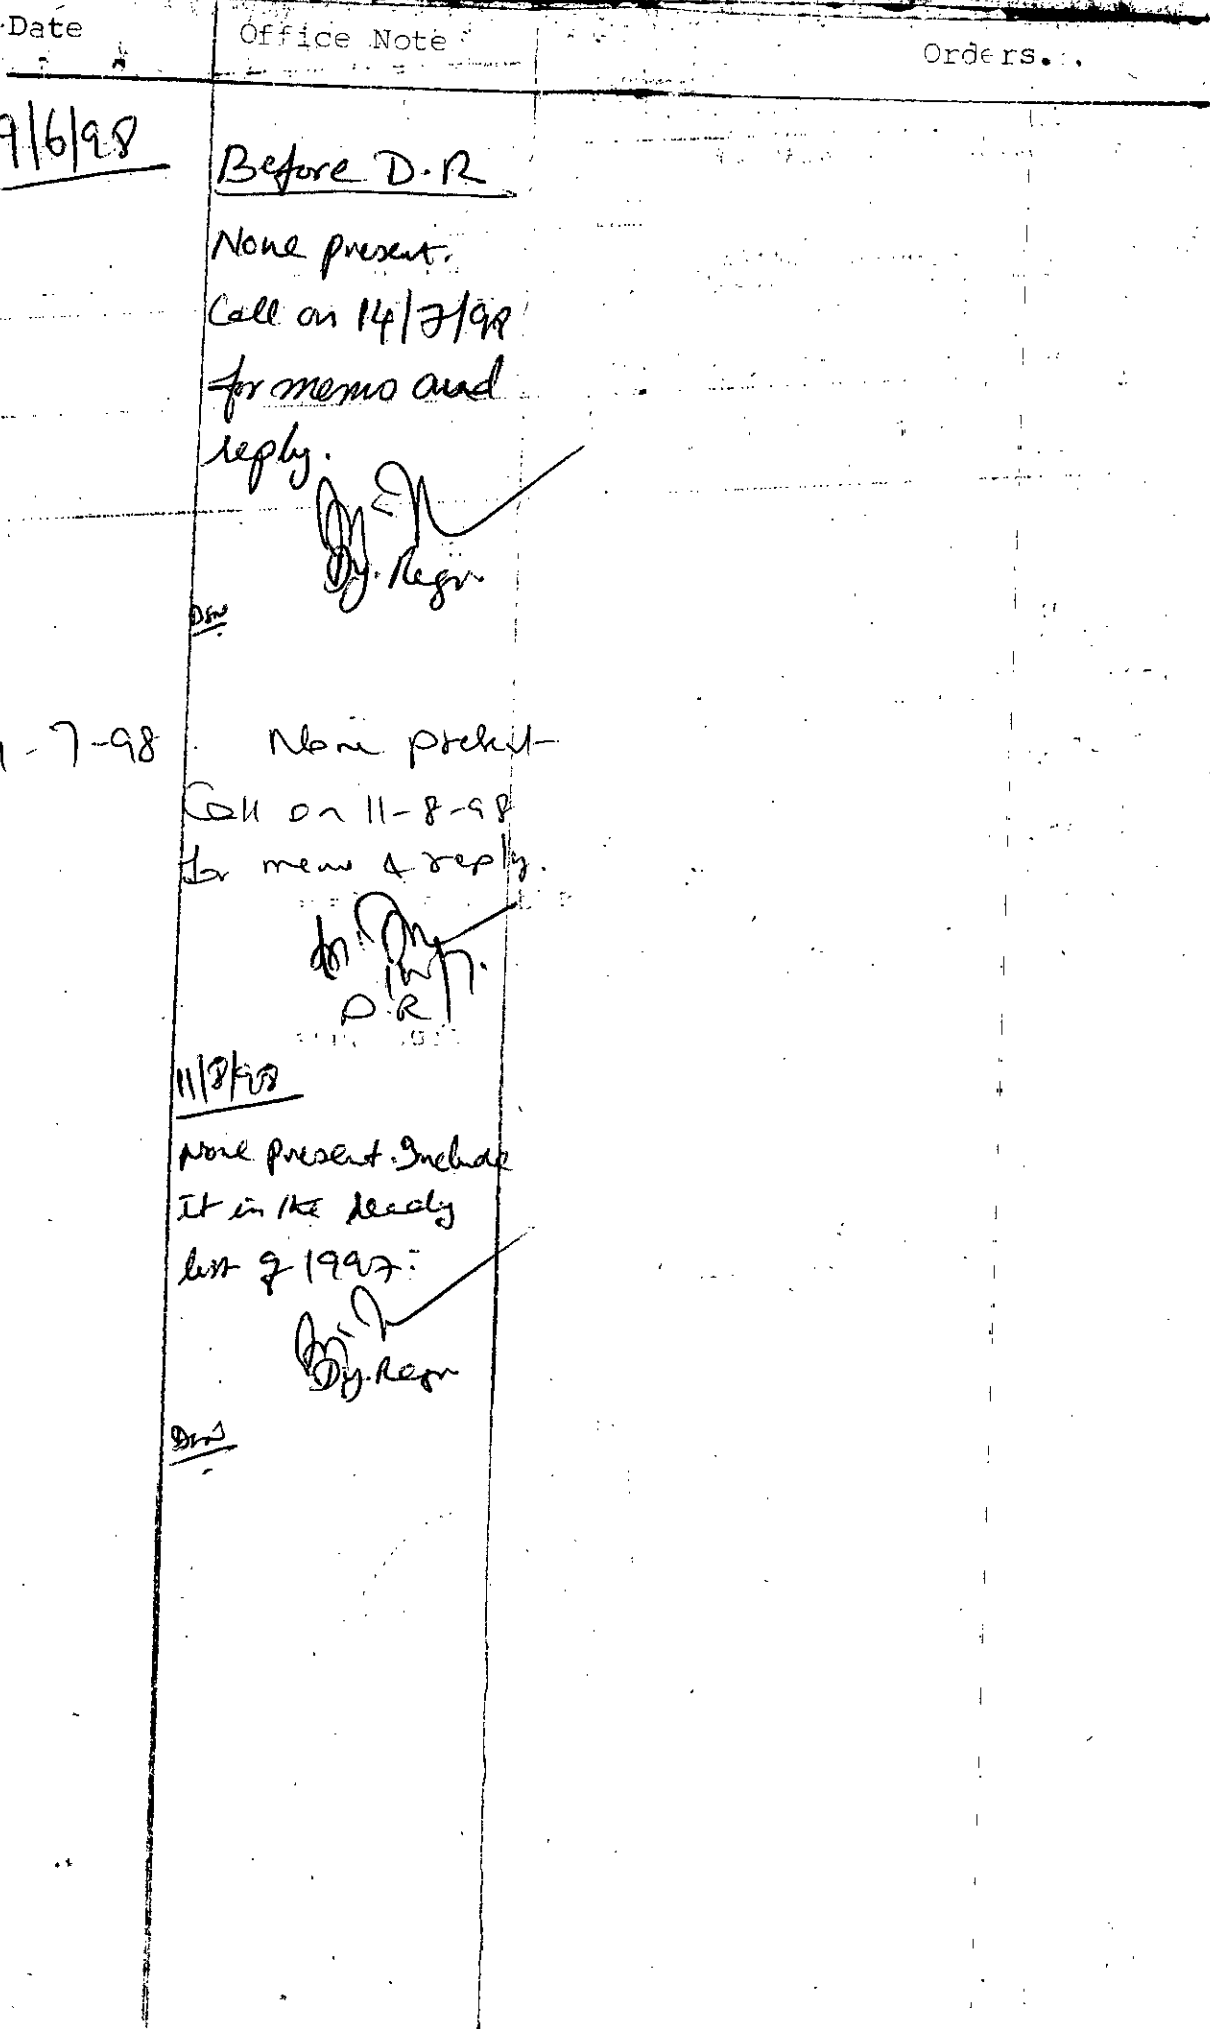 Date Office Note Orders..
9/6/98
Before D.R
None present.
Call on 14/7/98
for memo and
reply.
Dy. Regr
-7-98 None present
Call on 11-8-98
for memo & reply.
D.R
11/8/98
None present. Include
it in the ready
list of 1997.
Dy. Regr